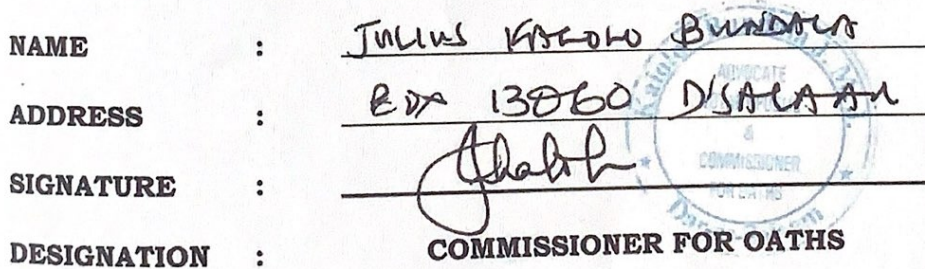 NAME : JULIUS KALOLO BUNDALA
ADDRESS : BOX 13060 D'SALAAM
SIGNATURE :
ADVOCATE
&
COMMISSIONER
FOR OATHS
DESIGNATION : COMMISSIONER FOR OATHS